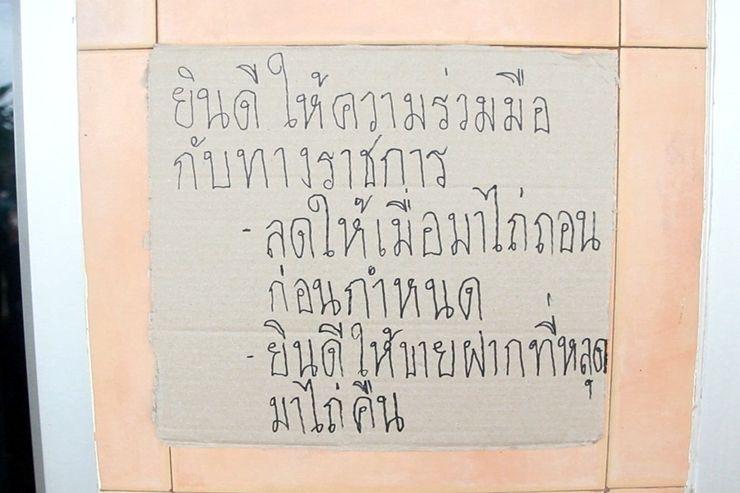 ยินดี ให้ความร่วมมือ
กับทางราชการ
- ลดให้เมื่อมาไถ่ถอน
ก่อนกำหนด
- ยินดีให้ขายฝากที่หลุด
มาไถ่คืน